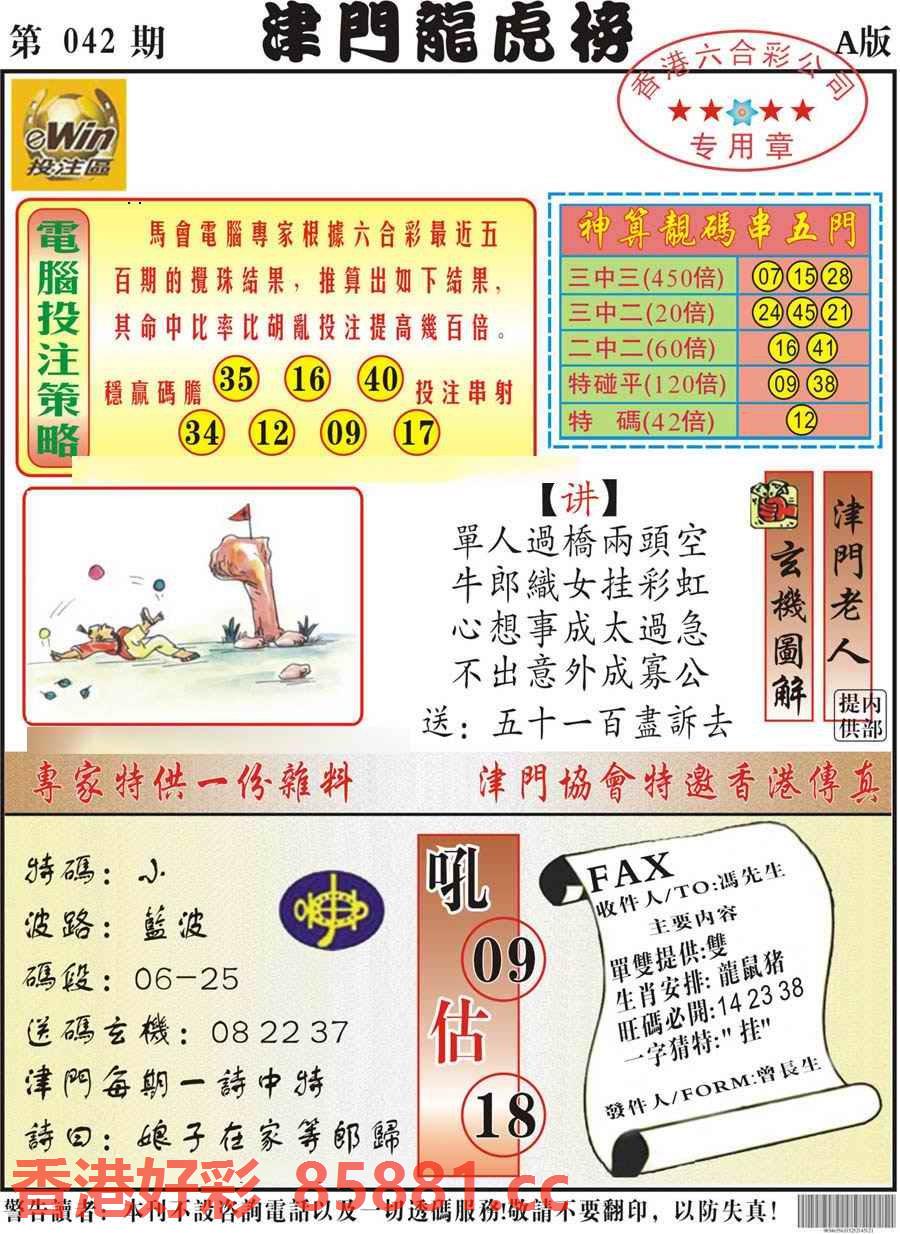 第 042 期
津門龍虎榜
A版
香港六合彩公司
专用章
eWin
投注區
電腦投注策略
馬會電腦專家根據六合彩最近五
百期的攪珠結果，推算出如下結果，
其命中比率比胡亂投注提高幾百倍。
穩贏碼膽 35 16 40 投注串射
34 12 09 17
神算靚碼串五門
三中三(450倍) 07 15 28
三中二(20倍) 24 45 21
二中二(60倍) 16 41
特碰平(120倍) 09 38
特 碼(42倍) 12
【讲】
單人過橋兩頭空
牛郎織女挂彩虹
心想事成太過急
不出意外成寡公
送：五十一百盡訴去
玄機圖解
津門老人
提供
内部
專家特供一份雜料
津門協會特邀香港傳真
特碼：小
波路：藍波
碼段：06-25
送碼玄機：08 22 37
津門每期一詩中特
詩曰：娘子在家等郎歸
吼
09
估
18
FAX
收件人/TO:馮先生
主要内容
單雙提供:雙
生肖安排: 龍鼠猪
旺碼必開:14 23 38
一字猜特:"挂"
發件人/FORM:曾長生
香港好彩 85881.cc
警告讀者：本刊不設咨詢電話以及一切透碼服務!敬請不要翻印，以防失真!